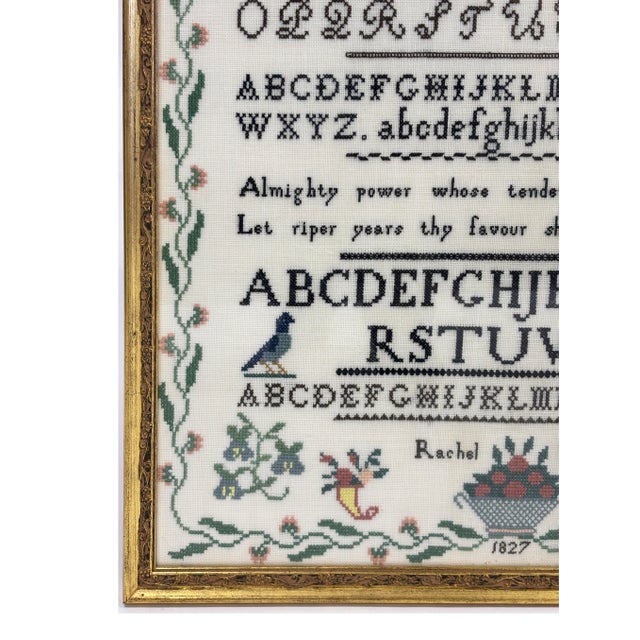 OPQRSTU
ABCDEFGHIJKLM
WXYZ. abcdefghijk
Almighty power whose tende
Let riper years thy favour sh
ABCDEFGHJK
RSTUV
ABCDEFGHIJKLM
Rachel
1827